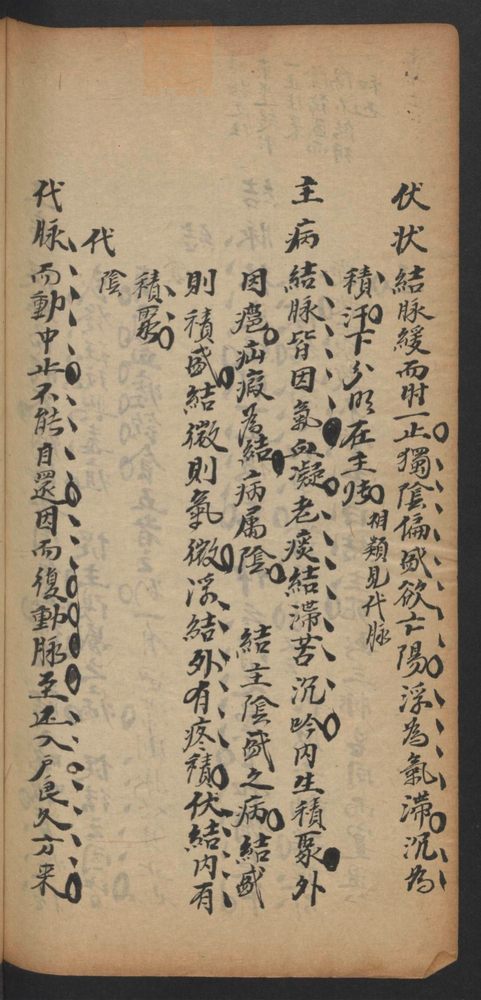 伏状 結脉緩而时一止獨陰偏盛欲亡陽浮為氣滯沉為
積汗下分明在主張 相類見代脉
主病 結脉皆因氣血凝老痰結滯苦沉吟内生積聚外
因癰疝瘕為結病属陰 結主陰盛之病結盛
則積盛結微則氣微浮結外有疼積伏結内有
積聚
代
陰
代脉而動中止不能自還因而復動脉至还入戸良久方来